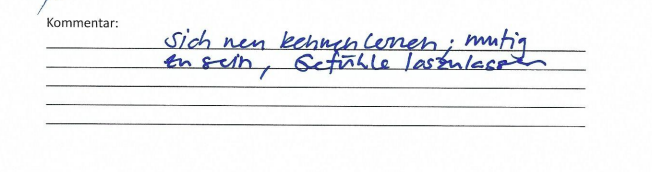 Kommentar:
sich neu kennenlernen; mutig
zu sein, Gefühle loszulassen